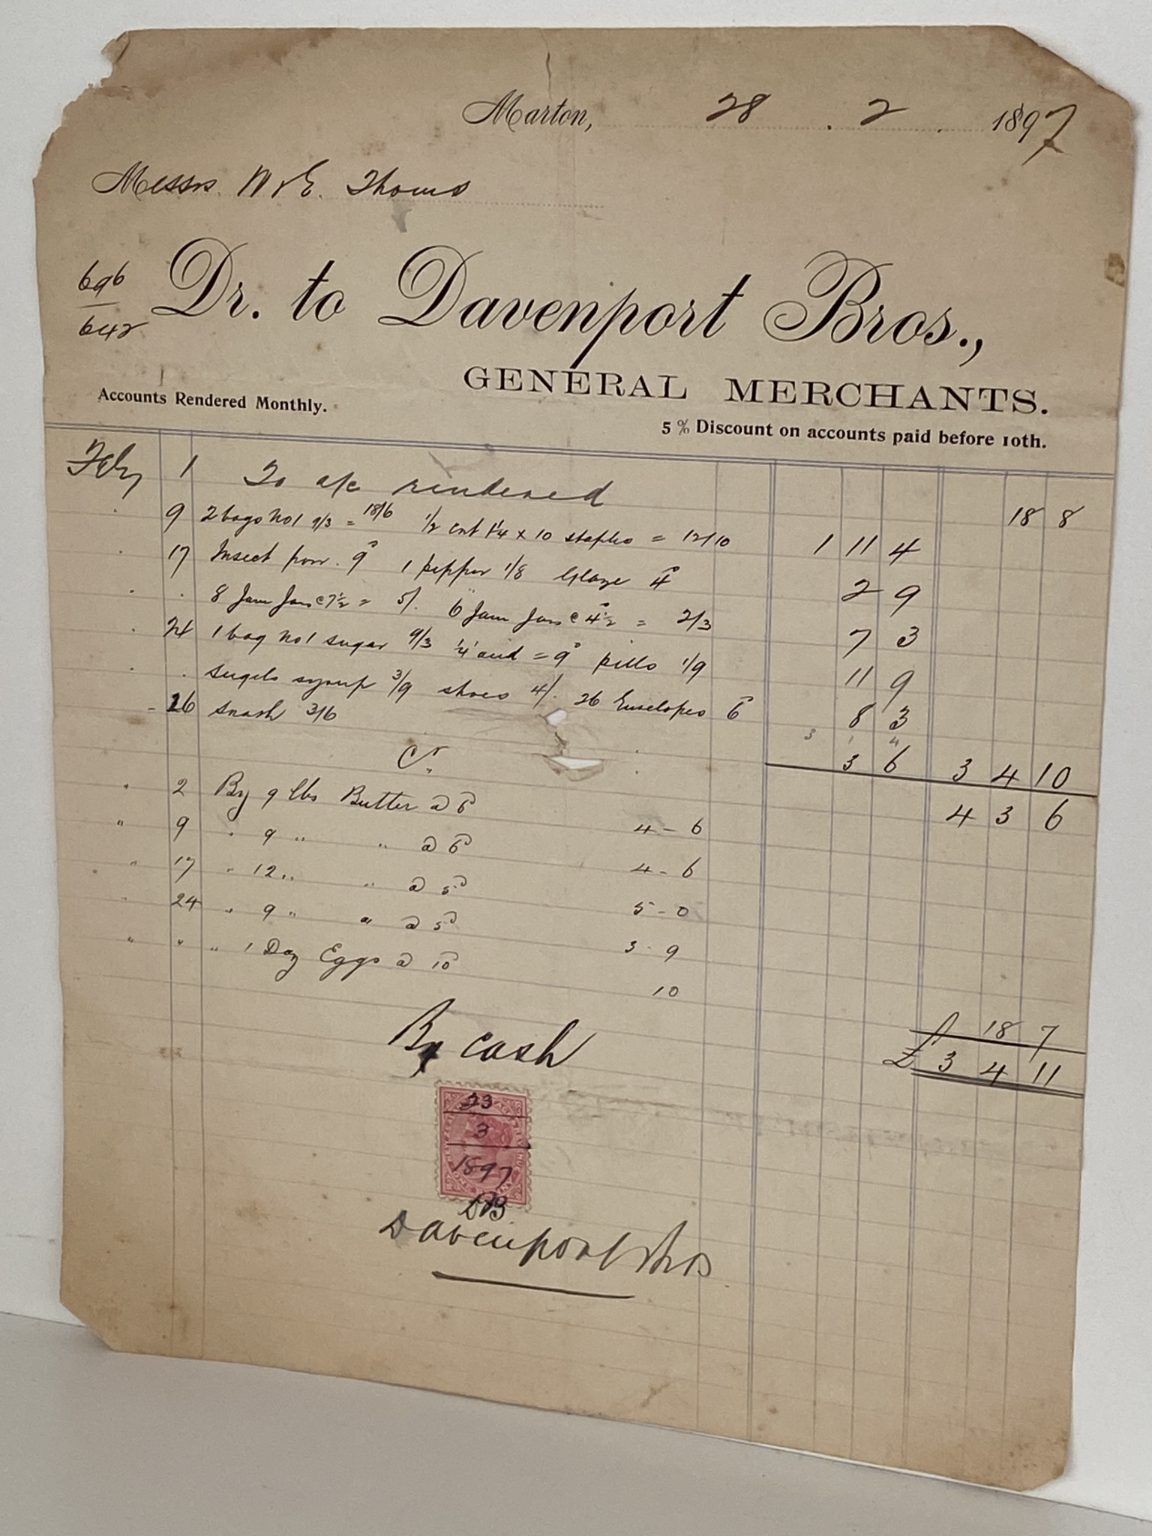 Marton, 28 . 2 . 1897
Messrs W & E. Thoms
696
642
Dr. to Davenport Bros.,
GENERAL MERCHANTS.
Accounts Rendered Monthly.
5 % Discount on accounts paid before 10th.
Feby 1 To a/c rendered 18 8
9 2 bags No 1 9/3 = 18/6 1/2 cwt 1 1/4 x 10 staples = 12/10 1 11 4
17 Insect pow. 9d 1 pepper 1/8 Glaze 4d 2 9
8 Jam Jars @ 7 1/2 = 5/. 6 Jam Jars @ 4 1/2 = 2/3 7 3
24 1 bag No 1 sugar 9/3 = 9d pills 1/9 11 9
syrup 3/9 shoes 4/. 26 Envelopes 6d 8 3
26 3/6 3 6 3 4 10
Cr. 4 3 6
" 2 By 9 lbs Butter @ 6d 4 - 6
" 9 " 9 " " @ 6d 4 - 6
" 17 " 12 " " @ 5d 5 - 0
" 24 " 9 " " @ 5d 3 - 9
" " " 1 Doz Eggs @ 10d 10
18 7
By cash £ 3 4 11
23
3
1897
DB
Davenport Bros